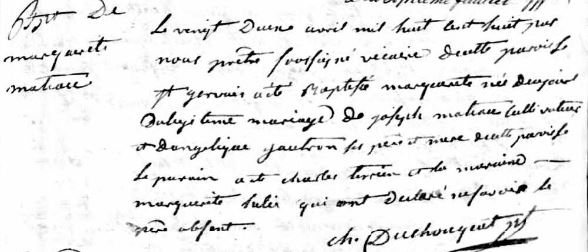 Bpt De
margarete
matieu
Le vingt Deux avril mil huit cent huit par
nous prêtre soussigné vicaire decette paroisse
st gervais a eté Baptisé marguerite née dujour
Dulegitime mariage De joseph matieu cultivateur
et dangelique gautron ses pere et mere decette paroisse
Le parain a eté charles terrien et la maraine
marguerite qui ont declaré nesavoir le
père absent.
ch. Duchouquet pt